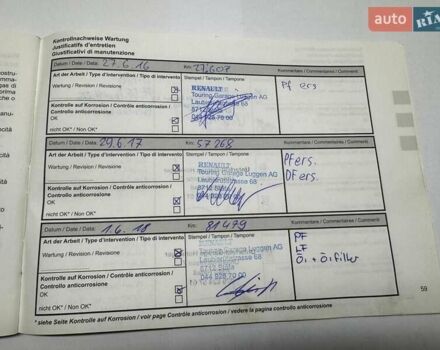 auto RIA
Kontrollnachweise Wartung
Justificatifs d'entretien
Giustificativi di manutenzione
Datum / Date / Data: 27.6.16 Km: 27,607
Art der Arbeit / Type d'intervention / Tipo di intervento
Wartung / Revision / Revisione
Kontrolle auf Korrosion / Contrôle anticorrosion / Controllo anticorrosione
OK
nicht OK* / Not OK* / Non OK*
Stempel / Tampon / Tampone
RENAULT
Touring Garage Luggen AG
044 928 70 00
Kommentare / Commentaires / Commenti
Pf ers
Datum / Date / Data: 29.6.17 Km: 57268
Art der Arbeit / Type d'intervention / Tipo di intervento
Wartung / Revision / Revisione
Kontrolle auf Korrosion / Contrôle anticorrosion / Controllo anticorrosione
OK
nicht OK* / Not OK* / Non OK*
Stempel / Tampon / Tampone
RENAULT
Touring Garage Luggen AG
8712 Stäfa
Kommentare / Commentaires / Commenti
Pf ers.
DF ers.
Datum / Date / Data: 1.6.18 Km: 81479
Art der Arbeit / Type d'intervention / Tipo di intervento
Wartung / Revision / Revisione
Kontrolle auf Korrosion / Contrôle anticorrosion / Controllo anticorrosione
OK
nicht OK* / Not OK* / Non OK*
Stempel / Tampon / Tampone
RENAULT
Touring Garage Luggen AG
8712 Stäfa
044 928 70 00
Kommentare / Commentaires / Commenti
PF
LF
Öl + Ölfilter
* siehe Seite Kontrolle auf Korrosion / voir page Contrôle anticorrosion / vedere la pagina controllo anticorrosione
59